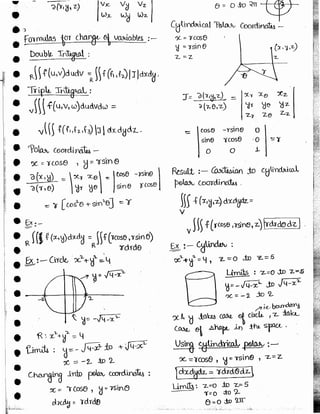 ∂(x,y,z) | ux uy uz |
wx wy wz
Formulas for change of variables :—
Double Integral :
∬_R f(u,v)dudv = ∬_R f(f₁,f₂)|J|dxdy.
Triple Integral :
∭_V f(u,v,w)dudvdw =
∭_V f(f₁,f₂,f₃)|J| dxdydz.
Polar coordinates —
x = rcosθ , y = rsinθ
∂(x,y)/∂(r,θ) = | xr xθ ; yr yθ | = | cosθ -rsinθ ; sinθ rcosθ |
= r [cos²θ + sin²θ] = r
Ex :—
∬_R f(x,y)dxdy = ∬_R f(rcosθ, rsinθ) rdrdθ
Ex :— Circle x²+y²=4
y = √4-x²
-2
2
y = -√4-x²
R: x²+y² = 4
Limits : y = -√4-x² to +√4-x²
x = -2 to 2
Changing into polar coordinates :
x = rcosθ , y = rsinθ
dxdy = rdrdθ
θ = 0 to 2π
Cylindrical Polar Coordinates —
x = rcosθ
y = rsinθ
z = z
(x,y,z)
z
θ
r
J = ∂(x,y,z)/∂(r,θ,z) = | xr xθ xz ; yr yθ yz ; zr zθ zz |
= | cosθ -rsinθ 0 ; sinθ rcosθ 0 ; 0 0 1 | = r
Result :— Cartesian to cylindrical
polar coordinates.
∭_V f(x,y,z)dxdydz =
∭_V f(rcosθ, rsinθ, z) rdrdθdz.
Ex :— Cylinder :
x²+y²=4 , z=0 to z=5
Limits : z=0 to z=5
y=-√4-x² to √4-x²
x = -2 to 2
ie boundary
x & y takes care of circle, z takes
care of shape in the space.
Using cylindrical polar :—
x = rcosθ , y = rsinθ , z=z
dxdydz = rdrdθdz
Limits : z=0 to z=5
r=0 to 2
θ=0 to 2π